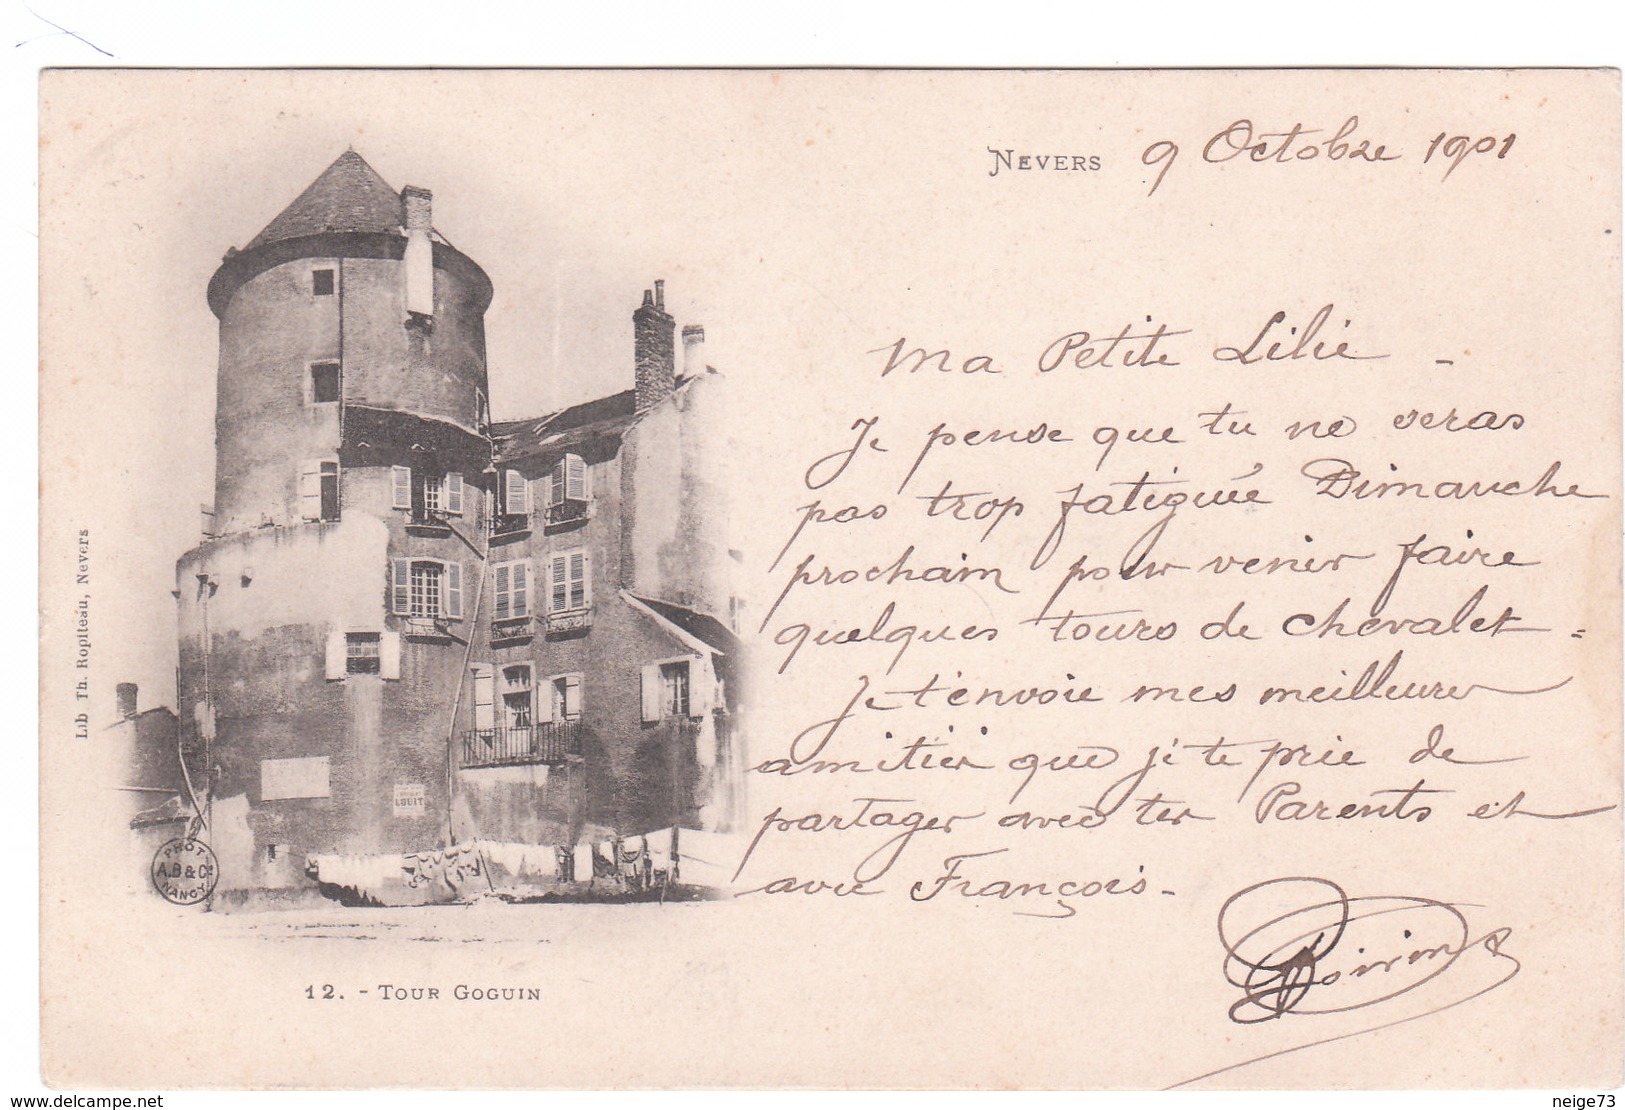 NEVERS 9 Octobre 1901
Ma Petite Lilie -
Je pense que tu ne seras
pas trop fatiguée Dimanche
prochain pour venir faire
quelques tours de chevalet -
Je t'envoie mes meilleures
amitiés que je te prie de
partager avec tes Parents et
avec François -
Poirier
Lib Th. Ropiteau, Nevers
LOUIT
PHOT
A.B & Cie
NANCY
12. - TOUR GOGUIN
www.delcampe.net
neige73